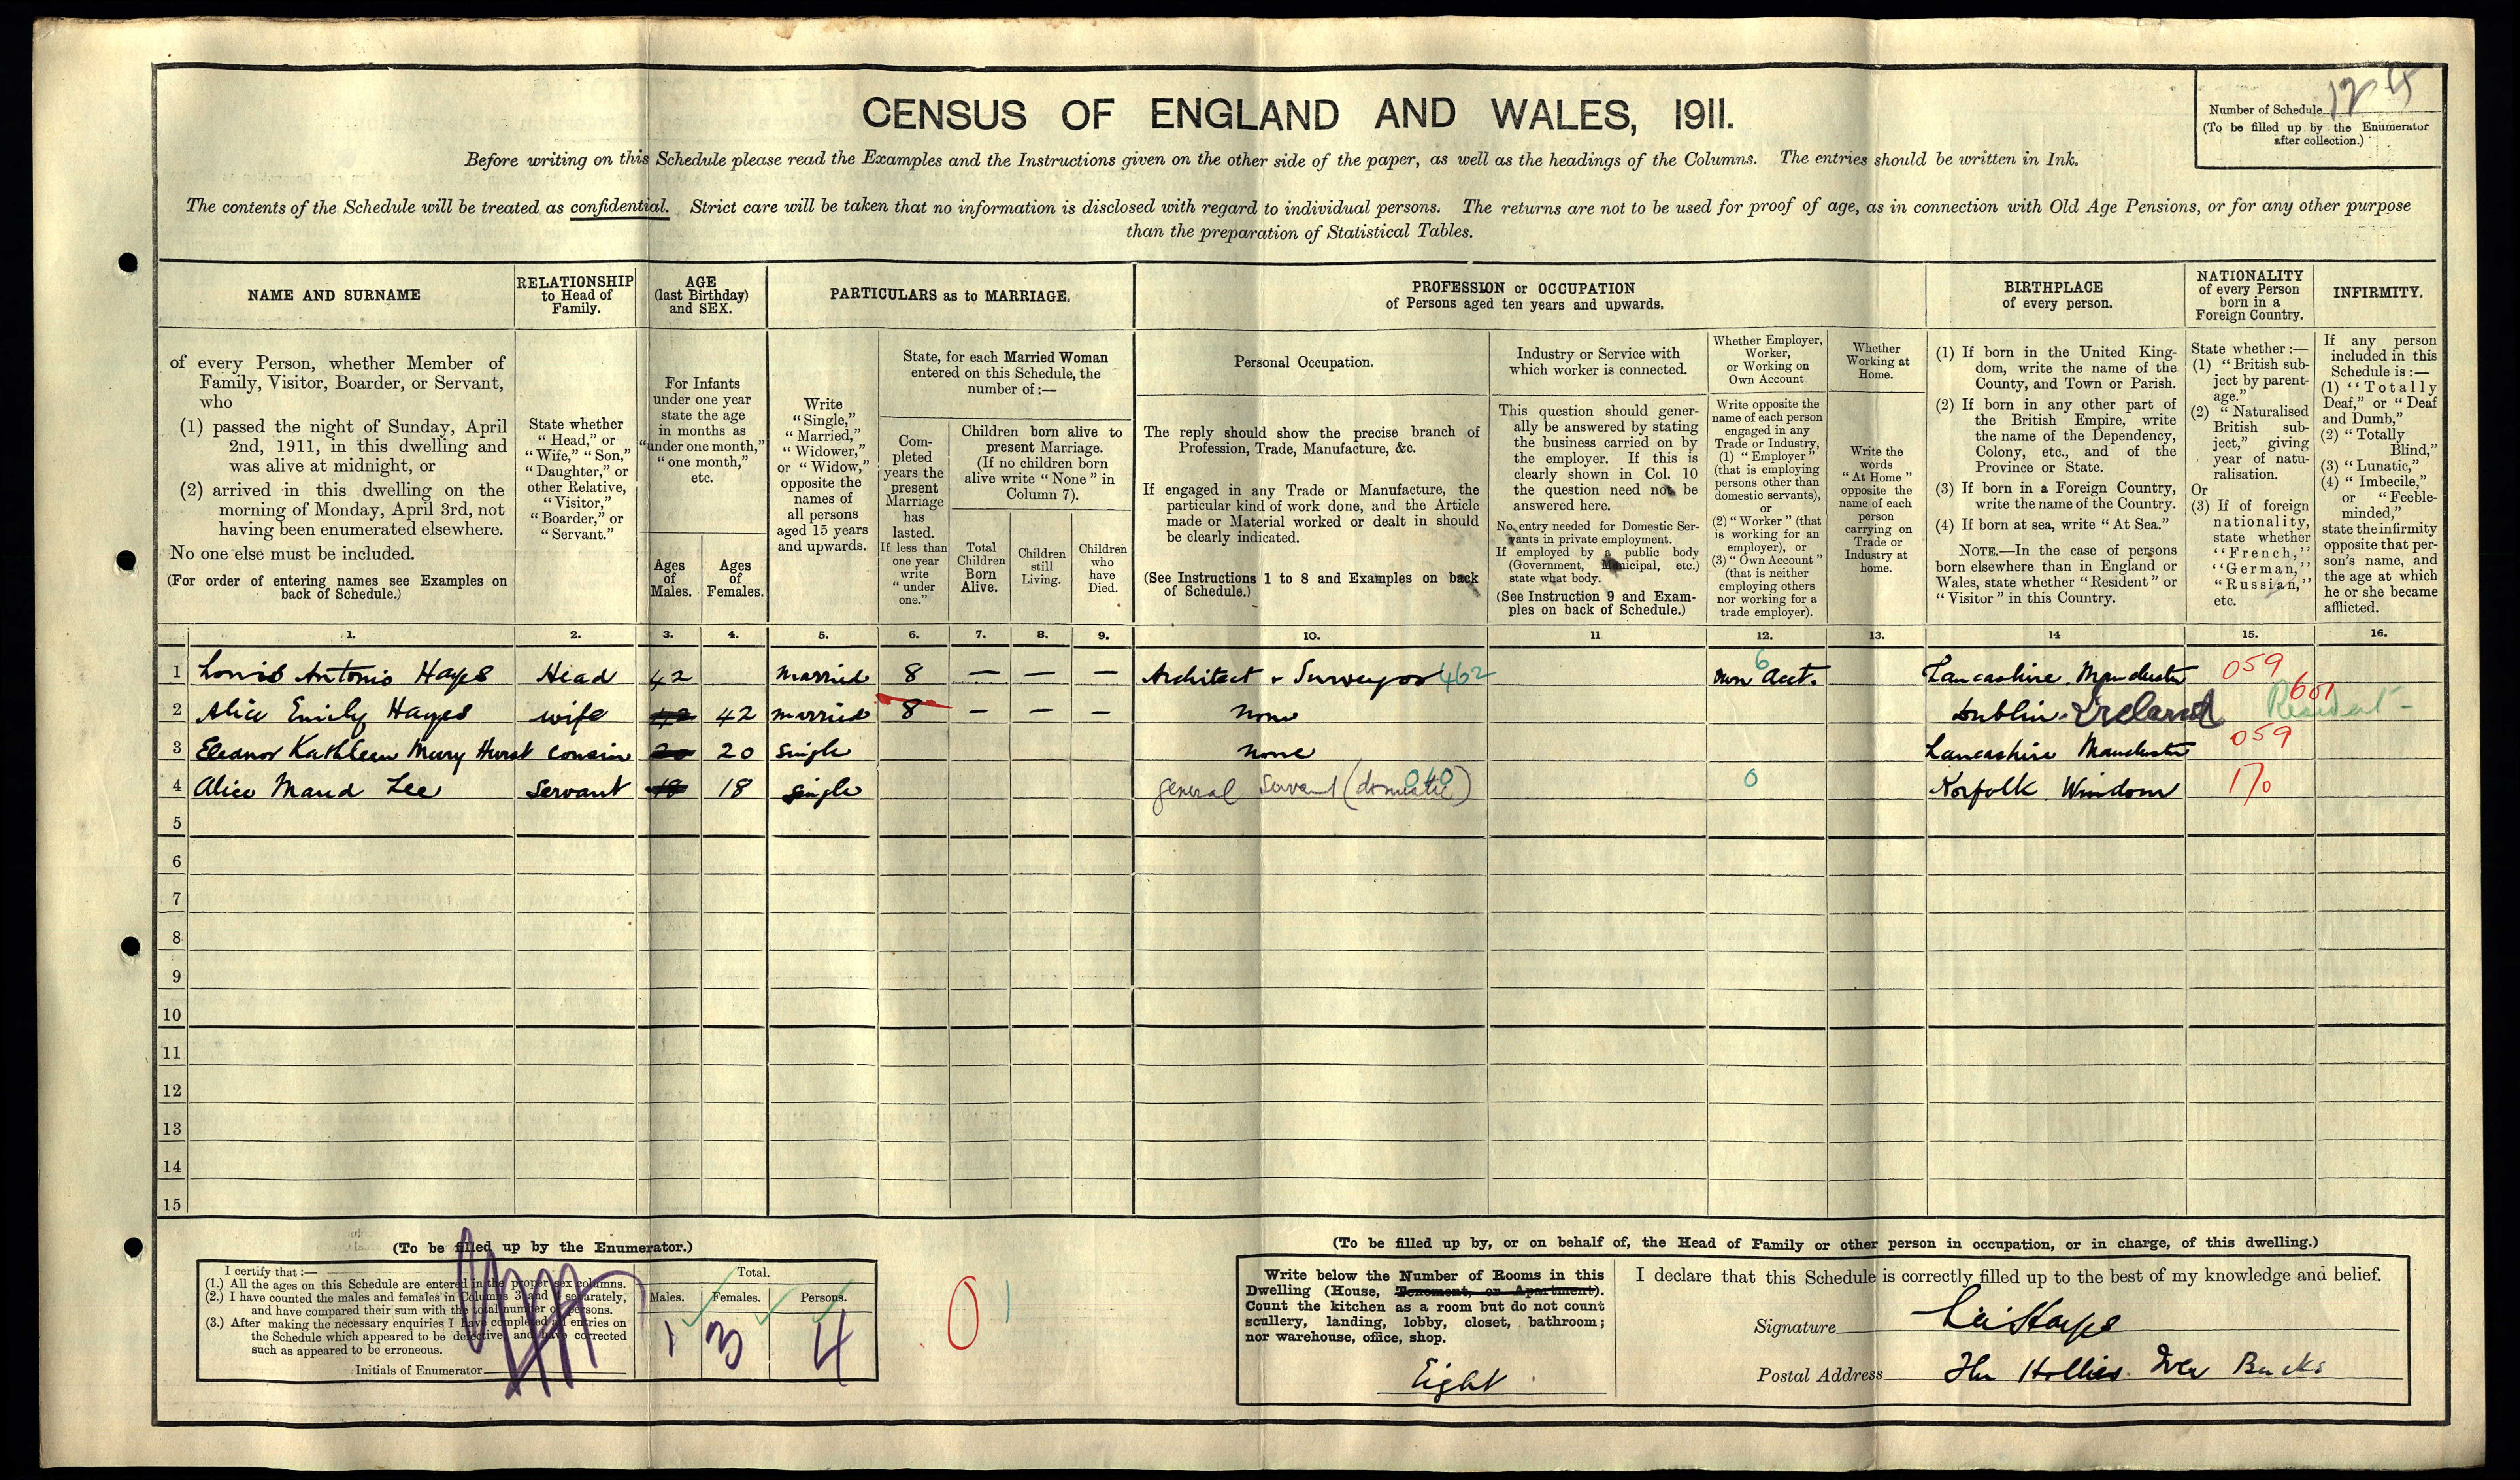 CENSUS OF ENGLAND AND WALES, 1911.
Number of Schedule
(To be filled up by the Enumerator
after collection.)
Before writing on this Schedule please read the Examples and the Instructions given on the other side of the paper, as well as the headings of the Columns. The entries should be written in Ink.
The contents of the Schedule will be treated as confidential. Strict care will be taken that no information is disclosed with regard to individual persons. The returns are not to be used for proof of age, as in connection with Old Age Pensions, or for any other purpose
than the preparation of Statistical Tables.
NAME AND SURNAME
of every Person, whether Member of
Family, Visitor, Boarder, or Servant,
who
(1) passed the night of Sunday, April
2nd, 1911, in this dwelling and
was alive at midnight, or
(2) arrived in this dwelling on the
morning of Monday, April 3rd, not
having been enumerated elsewhere.
No one else must be included.
(For order of entering names see Examples on
back of Schedule.)
RELATIONSHIP
to Head of
Family.
State whether
"Head," or
"Wife," "Son,"
"Daughter," or
other Relative,
"Visitor,"
"Boarder," or
"Servant."
AGE
(last Birthday)
and SEX.
For Infants
under one year
state the age
in months as
"under one month,"
"one month,"
etc.
Ages
of
Males.
Ages
of
Females.
PARTICULARS as to MARRIAGE.
Write
"Single,"
"Married,"
"Widower,"
or "Widow,"
opposite the
names of
all persons
aged 15 years
and upwards.
State, for each Married Woman
entered on this Schedule, the
number of:—
Com-
pleted
years the
present
Marriage
has
lasted.
If less than
one year
write
"under
one."
Children born alive to
present Marriage.
(If no children born
alive write "None" in
Column 7).
Total
Children
Born
Alive.
Children
still
Living.
Children
who
have
Died.
PROFESSION or OCCUPATION
of Persons aged ten years and upwards.
Personal Occupation.
The reply should show the precise branch of
Profession, Trade, Manufacture, &c.
If engaged in any Trade or Manufacture, the
particular kind of work done, and the Article
made or Material worked or dealt in should
be clearly indicated.
(See Instructions 1 to 8 and Examples on back
of Schedule.)
Industry or Service with
which worker is connected.
This question should gener-
ally be answered by stating
the business carried on by
the employer. If this is
clearly shown in Col. 10
the question need not be
answered here.
No entry needed for Domestic Ser-
vants in private employment.
If employed by a public body
(Government, Municipal, etc.)
state what body.
(See Instruction 9 and Exam-
ples on back of Schedule.)
Whether Employer,
Worker,
or Working on
Own Account
Write opposite the
name of each person
engaged in any
Trade or Industry,
(1) "Employer"
(that is employing
persons other than
domestic servants),
or
(2) "Worker" (that
is working for an
employer), or
(3) "Own Account"
(that is neither
employing others
nor working for a
trade employer).
Whether
Working at
Home.
Write the
words
"At Home"
opposite the
name of each
person
carrying on
Trade or
Industry at
home.
BIRTHPLACE
of every person.
(1) If born in the United King-
dom, write the name of the
County, and Town or Parish.
(2) If born in any other part of
the British Empire, write
the name of the Dependency,
Colony, etc., and of the
Province or State.
(3) If born in a Foreign Country,
write the name of the Country.
(4) If born at sea, write "At Sea."
NOTE.—In the case of persons
born elsewhere than in England or
Wales, state whether "Resident" or
"Visitor" in this Country.
NATIONALITY
of every Person
born in a
Foreign Country.
State whether :—
(1) "British sub-
ject by parent-
age."
(2) "Naturalised
British sub-
ject," giving
year of natu-
ralisation.
Or
(3) If of foreign
nationality,
state whether
"French,"
"German,"
"Russian,"
etc.
INFIRMITY.
If any person
included in this
Schedule is:—
(1) "Totally
Deaf," or "Deaf
and Dumb,"
(2) "Totally
Blind,"
(3) "Lunatic,"
(4) "Imbecile,"
or "Feeble-
minded,"
state the infirmity
opposite that per-
son's name, and
the age at which
he or she became
afflicted.
1. 2. 3. 4. 5. 6. 7. 8. 9. 10. 11 12. 13. 14 15. 16.
1 Louis Antonio Hayes Head 42 Married 8 — — — Architect & Surveyor 462 6 Own Acct. Lancashire Manchester 059
2 Alice Emily Hayes wife 42 42 married 8 — — — none Dublin. Ireland 601 Resident -
3 Eleanor Kathleen Mary Hurst cousin 20 20 single none Lancashire Manchester 059
4 Alice Maud Lee Servant 18 18 single general Servant (domestic) 010 0 Norfolk 170
5
6
7
8
9
10
11
12
13
14
15
(To be filled up by the Enumerator.)
I certify that :—
(1.) All the ages on this Schedule are entered in the proper sex columns.
(2.) I have counted the males and females in Columns 3 and 4 separately,
and have compared their sum with the total number of persons.
(3.) After making the necessary enquiries I have completed all entries on
the Schedule which appeared to be defective, and have corrected
such as appeared to be erroneous.
Initials of Enumerator
Total.
Males. Females. Persons.
1 3 4
0
(To be filled up by, or on behalf of, the Head of Family or other person in occupation, or in charge, of this dwelling.)
Write below the Number of Rooms in this
Dwelling (House, Tenement, or Apartment).
Count the kitchen as a room but do not count
scullery, landing, lobby, closet, bathroom;
nor warehouse, office, shop.
Eight
I declare that this Schedule is correctly filled up to the best of my knowledge and belief.
Signature Hayes
Postal Address The Hollies Iver Bucks